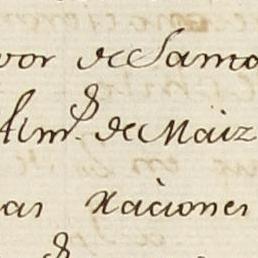 vor de Samo
Alm.ⁿ de Maiz
as Naciones